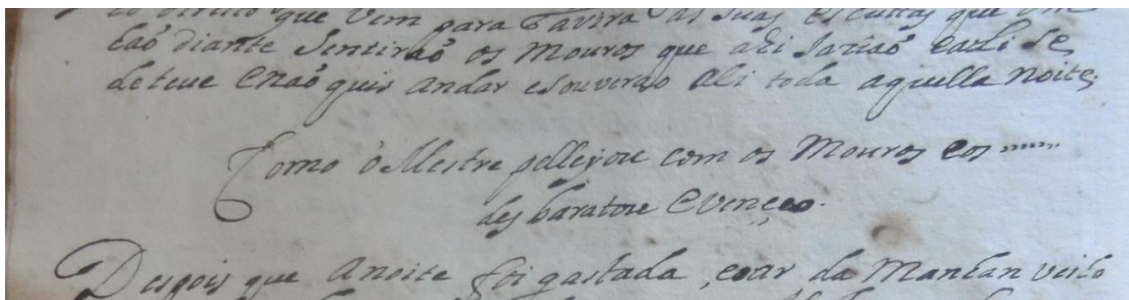 que vem para Tavira as suas escuitas que
haõ diante Sentiraõ os Mouros que ahi Jaziaõ eahi se
deteue Enaõ quis andar esouveraõ ali toda aquella noite;
Como o Mestre pellejou com os Mouros eos
desbaratou Evenceo.
Despois que anoite foi gastada, eoar da Manhan veiho